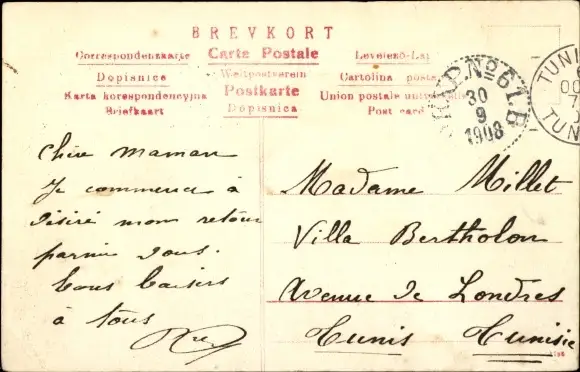 BREVKORT
Correspondenzkarte Carte Postale Levelező-Lap
Dopisnica Weltpostverein Cartolina posta
Karta korespondencyjna Postkarte Union postale universelle
Briefkaart Dopisnica Post card
No 6 I.B
30
9
1908
TUNI
OC
7
TUN
Chère Maman
Je commence à
désiré mon retour
parmi vous.
Bons baisers
à tous
Madame Millet
Villa Bertholon
Avenue de Londres
Tunis Tunisie